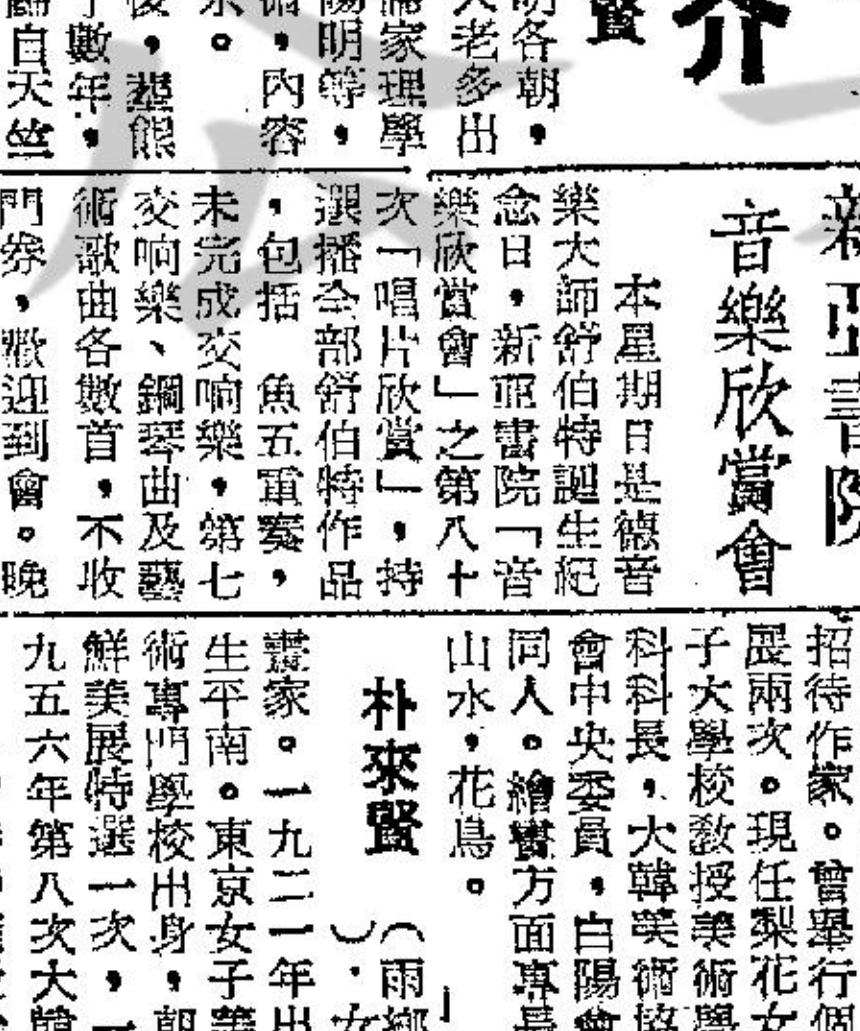 介
賢
明各朝，
大老多出
儒家理學
陽明等，
，內容
。
後，塑熊
數年，
自天竺
新亞書院
音樂欣賞會
本星期日是德音
樂大師舒伯特誕生紀
念日，新亞書院「音
樂欣賞會」之第八十
次「唱片欣賞」，持
選播全部舒伯特作品
，包括　魚五重奏，
未完成交响樂，第七
交响樂、鋼琴曲及藝
術歌曲各數首，不收
門券，歡迎到會。晚
招待作家。曾舉行個
展兩次。現任梨花女
子大學校教授美術學
科科長，大韓美術協
會中央委員，白陽會
同人。繪畫方面專長
山水，花鳥。
朴來賢
（雨鄉
）．女
畫家。一九二一年出
生平南。東京女子美
術專門學校出身，朝
鮮美展特選一次，一
九五六年第八次大韓